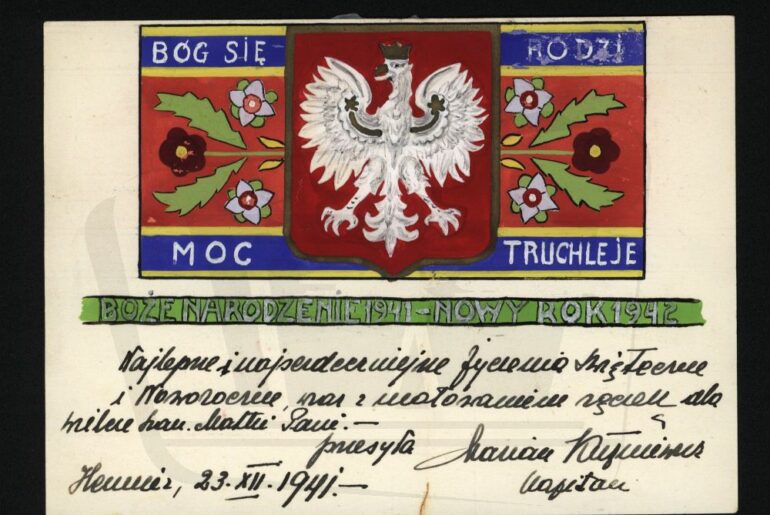 BÓG SIĘ RODZI
MOC TRUCHLEJE
BOŻE NARODZENIE 1941 – NOWY ROK 1942
Najlepsze i najserdeczniejsze życzenia świąteczne
i Noworoczne, wraz z ucałowaniem rączek dla
Matki Pani.—
przesyła Marian
Hemer, 23.XII.1941.— Kapitan